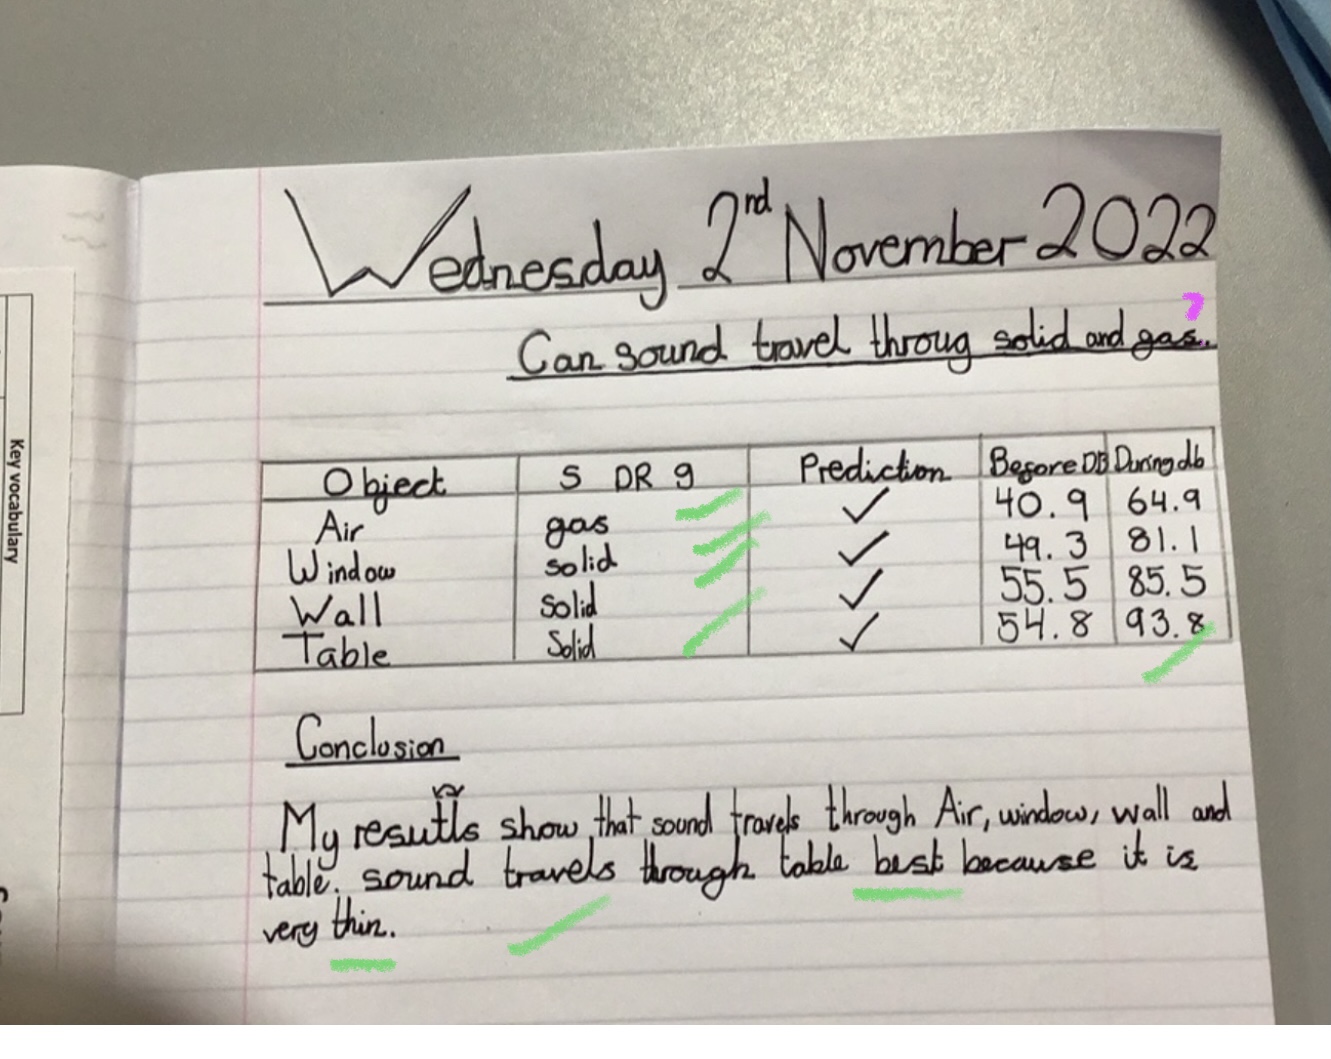 Wednesday 2nd November 2022
?
Can sound travel throug solid and gas.
Key vocabulary
Object S DR g Prediction Before DB During db
Air gas ✓ 40.9 64.9
Window solid ✓ 49.3 81.1
Wall solid ✓ 55.5 85.5
Table Solid ✓ 54.8 93.8
Conclusion
My resutls show that sound travels through Air, window, wall and
table. sound travels through table best because it is
very thin.